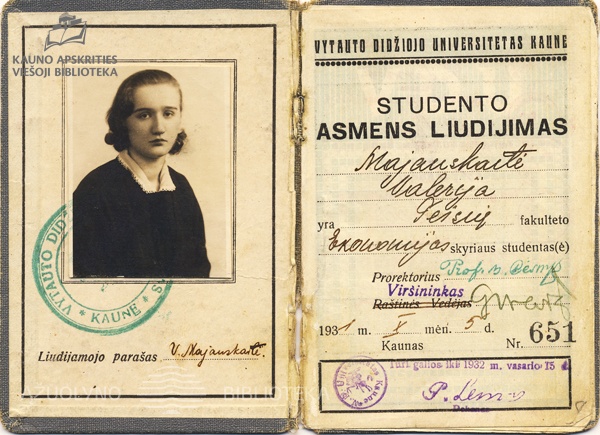 KAUNO APSKRITIES
VIEŠOJI BIBLIOTEKA
VYTAUTO DID
KAUNE
Liudijamojo parašas V. Majauskaitė
ĄŽUOLYNO BIBLIOTEKA
VYTAUTO DIDŽIOJO UNIVERSITETAS KAUNE
STUDENTO
ASMENS LIUDIJIMAS
Majauskaitė
Valerija
yra Teisių fakulteto
Ekonomijos skyriaus studentas(ė)
Prorektorius Prof. B. Česnys
Viršininkas
Raštinės Vedėjas
1931 m. X mėn. 5 d.
Kaunas Nr. 651
Turi galios iki 1932 m. vasario 15 d.
P. Lėmas
Dekanas